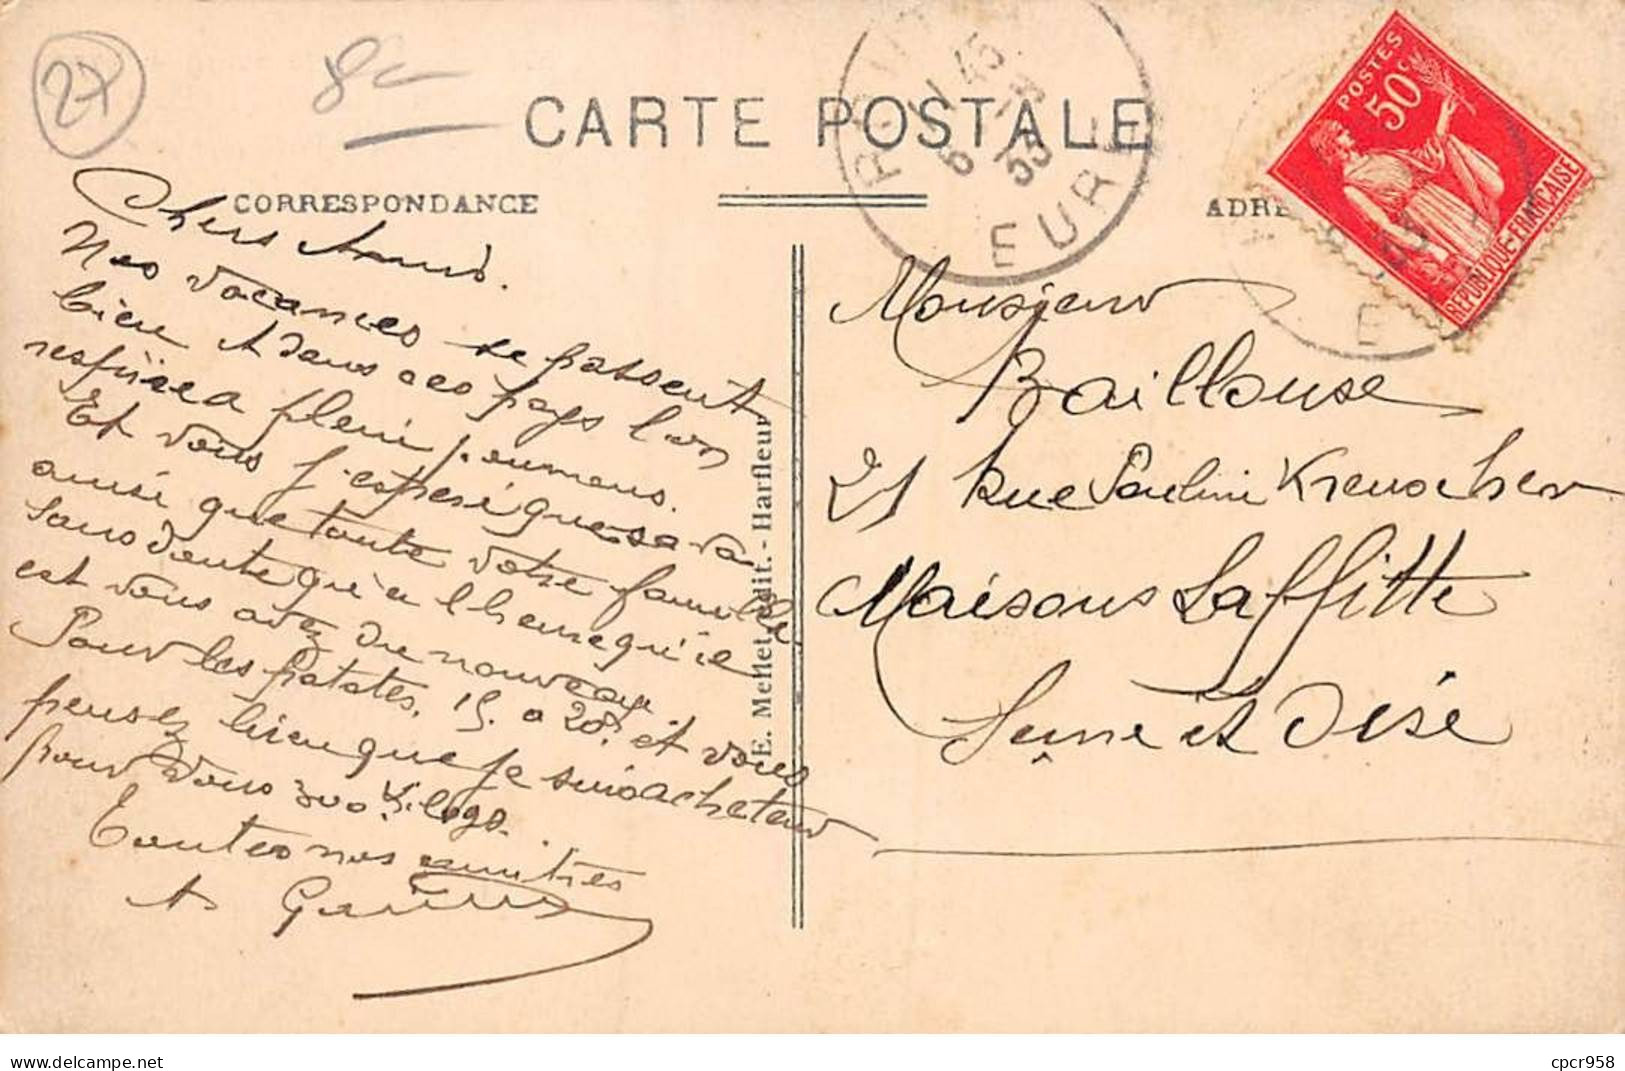 27
8
CARTE POSTALE
CORRESPONDANCE
ADRE
EURE
6
45
33
POSTES
50c
REPUBLIQUE-FRANÇAISE
Chers Amis.
Nos vacances se passent
bien et dans ces pays l'on
respire a plein poumons.
Et vous j'espère que sa va
ainsi que toute votre famille
sans doute qu'a l'heure qu'il
est vous avez du nouveau
Pour les patates, 15. a 20f et vous
pensez bien que je suis acheteur
pour vous 300 Kilogs.
Toutes nos amitiés
E. Mehet, édit. - Harfleur
Monsieur
Baillouse
21 Rue Pauline Kreuscher
Maisons Laffitte
Seine et Oise
cpcr958